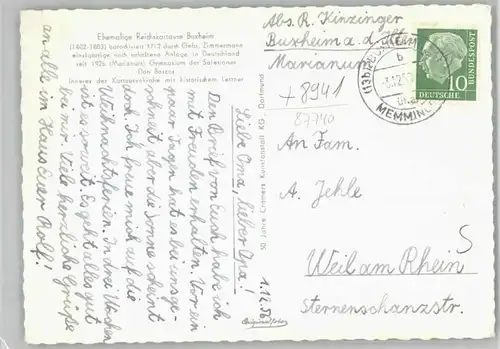 Ehemalige Reichskartause Buxheim
(1402-1803) barockisiert 1712 durch Gebr. Zimmermann
einzigartige noch erhaltene Anlage in Deutschland
seit 1926 (Marianum) Gymnasium der Salesianer
Don Boscos
Inneres der Kartausenkirche mit historischem Lettner
1.12.56
Liebe Oma, lieber Opa!
Den Brief von Euch habe ich
mit Freuden erhalten. Vor ein
paar Tagen hat es bei uns ge-
schneit aber die Sonne scheint
doch. Ich freue mich auf die
Weihnachtsferien. In drei Wochen
ist es soweit. Es geht alles gut
bei mir. Viele herzliche Grüße
an alle im Haus Euer Rolf!
50 Jahre Cramers Kunstanstalt KG., Dortmund
Originalfoto
Abs. R. Kinzinger
Buxheim a. d. Iller
Marianum
+ 8941
87740
(13b)
b
MEMMING
10
DEUTSCHE
BUNDESPOST
An Fam.
A. Jehle
Weil am Rhein
Sternenschanzstr.
5